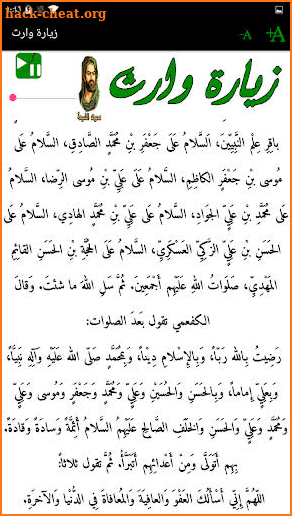 hack-cheat.org
زيارة وارث
-A
+A
زيارة وارث
باقِرِ عِلْمِ النَّبِيّينَ، اَلسَّلامُ عَلى جَعْفَرِ بْنِ مُحَمَّدٍ الصَّادِقِ، السَّلامُ عَلَى
مُوسى بْنِ جَعْفَرٍ الكاظِمِ، السَّلامُ عَلَى عَلِيِّ بْنِ مُوسَى الرِّضا، السَّلامُ
عَلَى مُحَمَّدِ بْنِ عَلِيٍّ الجَوادِ، السَّلامُ عَلَى عَلِيِّ بْنِ مُحَمَّدٍ الهادِي، السَّلامُ عَلَى
الحَسَنِ بْنِ عَلِيٍّ الزَّكِيِّ العَسْكَرِيِّ، السَّلامُ عَلَى الحُجَّةِ بْنِ الحَسَنِ القائِمِ
المَهْدِيِّ، صَلَواتُ اللهِ عَلَيْهِم أَجْمَعِينَ. ثُمَّ سَلِ اللهَ ما شئتَ. وَقالَ
الكفعمي تقول بَعدَ الصلوات:
رَضِيتُ بِالله رَبّاً، وَبِالإسْلامِ دِيناً، وَبِمُحَمَّدٍ صَلّى الله عَلَيْهِ وَآلِهِ نَبِيَّاً،
وَبِعَلِيٍّ إماماً، وَبِالحَسَنِ وَالحُسَيْنِ وَعَلِيٍّ وَمُحَمَّدٍ وَجَعْفَرٍ وَمُوسى وَعَلِيٍّ
وَمُحَمَّدٍ وَعَلِيٍّ وَالحَسَنِ وَالخَلَفِ الصَّالِحِ عَلَيْهِمُ السَّلامُ أَئِمَّةً وَسادَةً وَقادَةً.
بِهِم أَتَوَلَّى وَمِنْ أَعدائِهِم أَتَبَرَّأُ. ثُمَّ تَقول ثلاثاً:
اللَّهُمَّ إِنِّي أَسْأَلُكَ العَفْوَ وَالعافِيَةَ وَالمُعافاةَ فِي الدُّنْيا وَالآخرةِ.